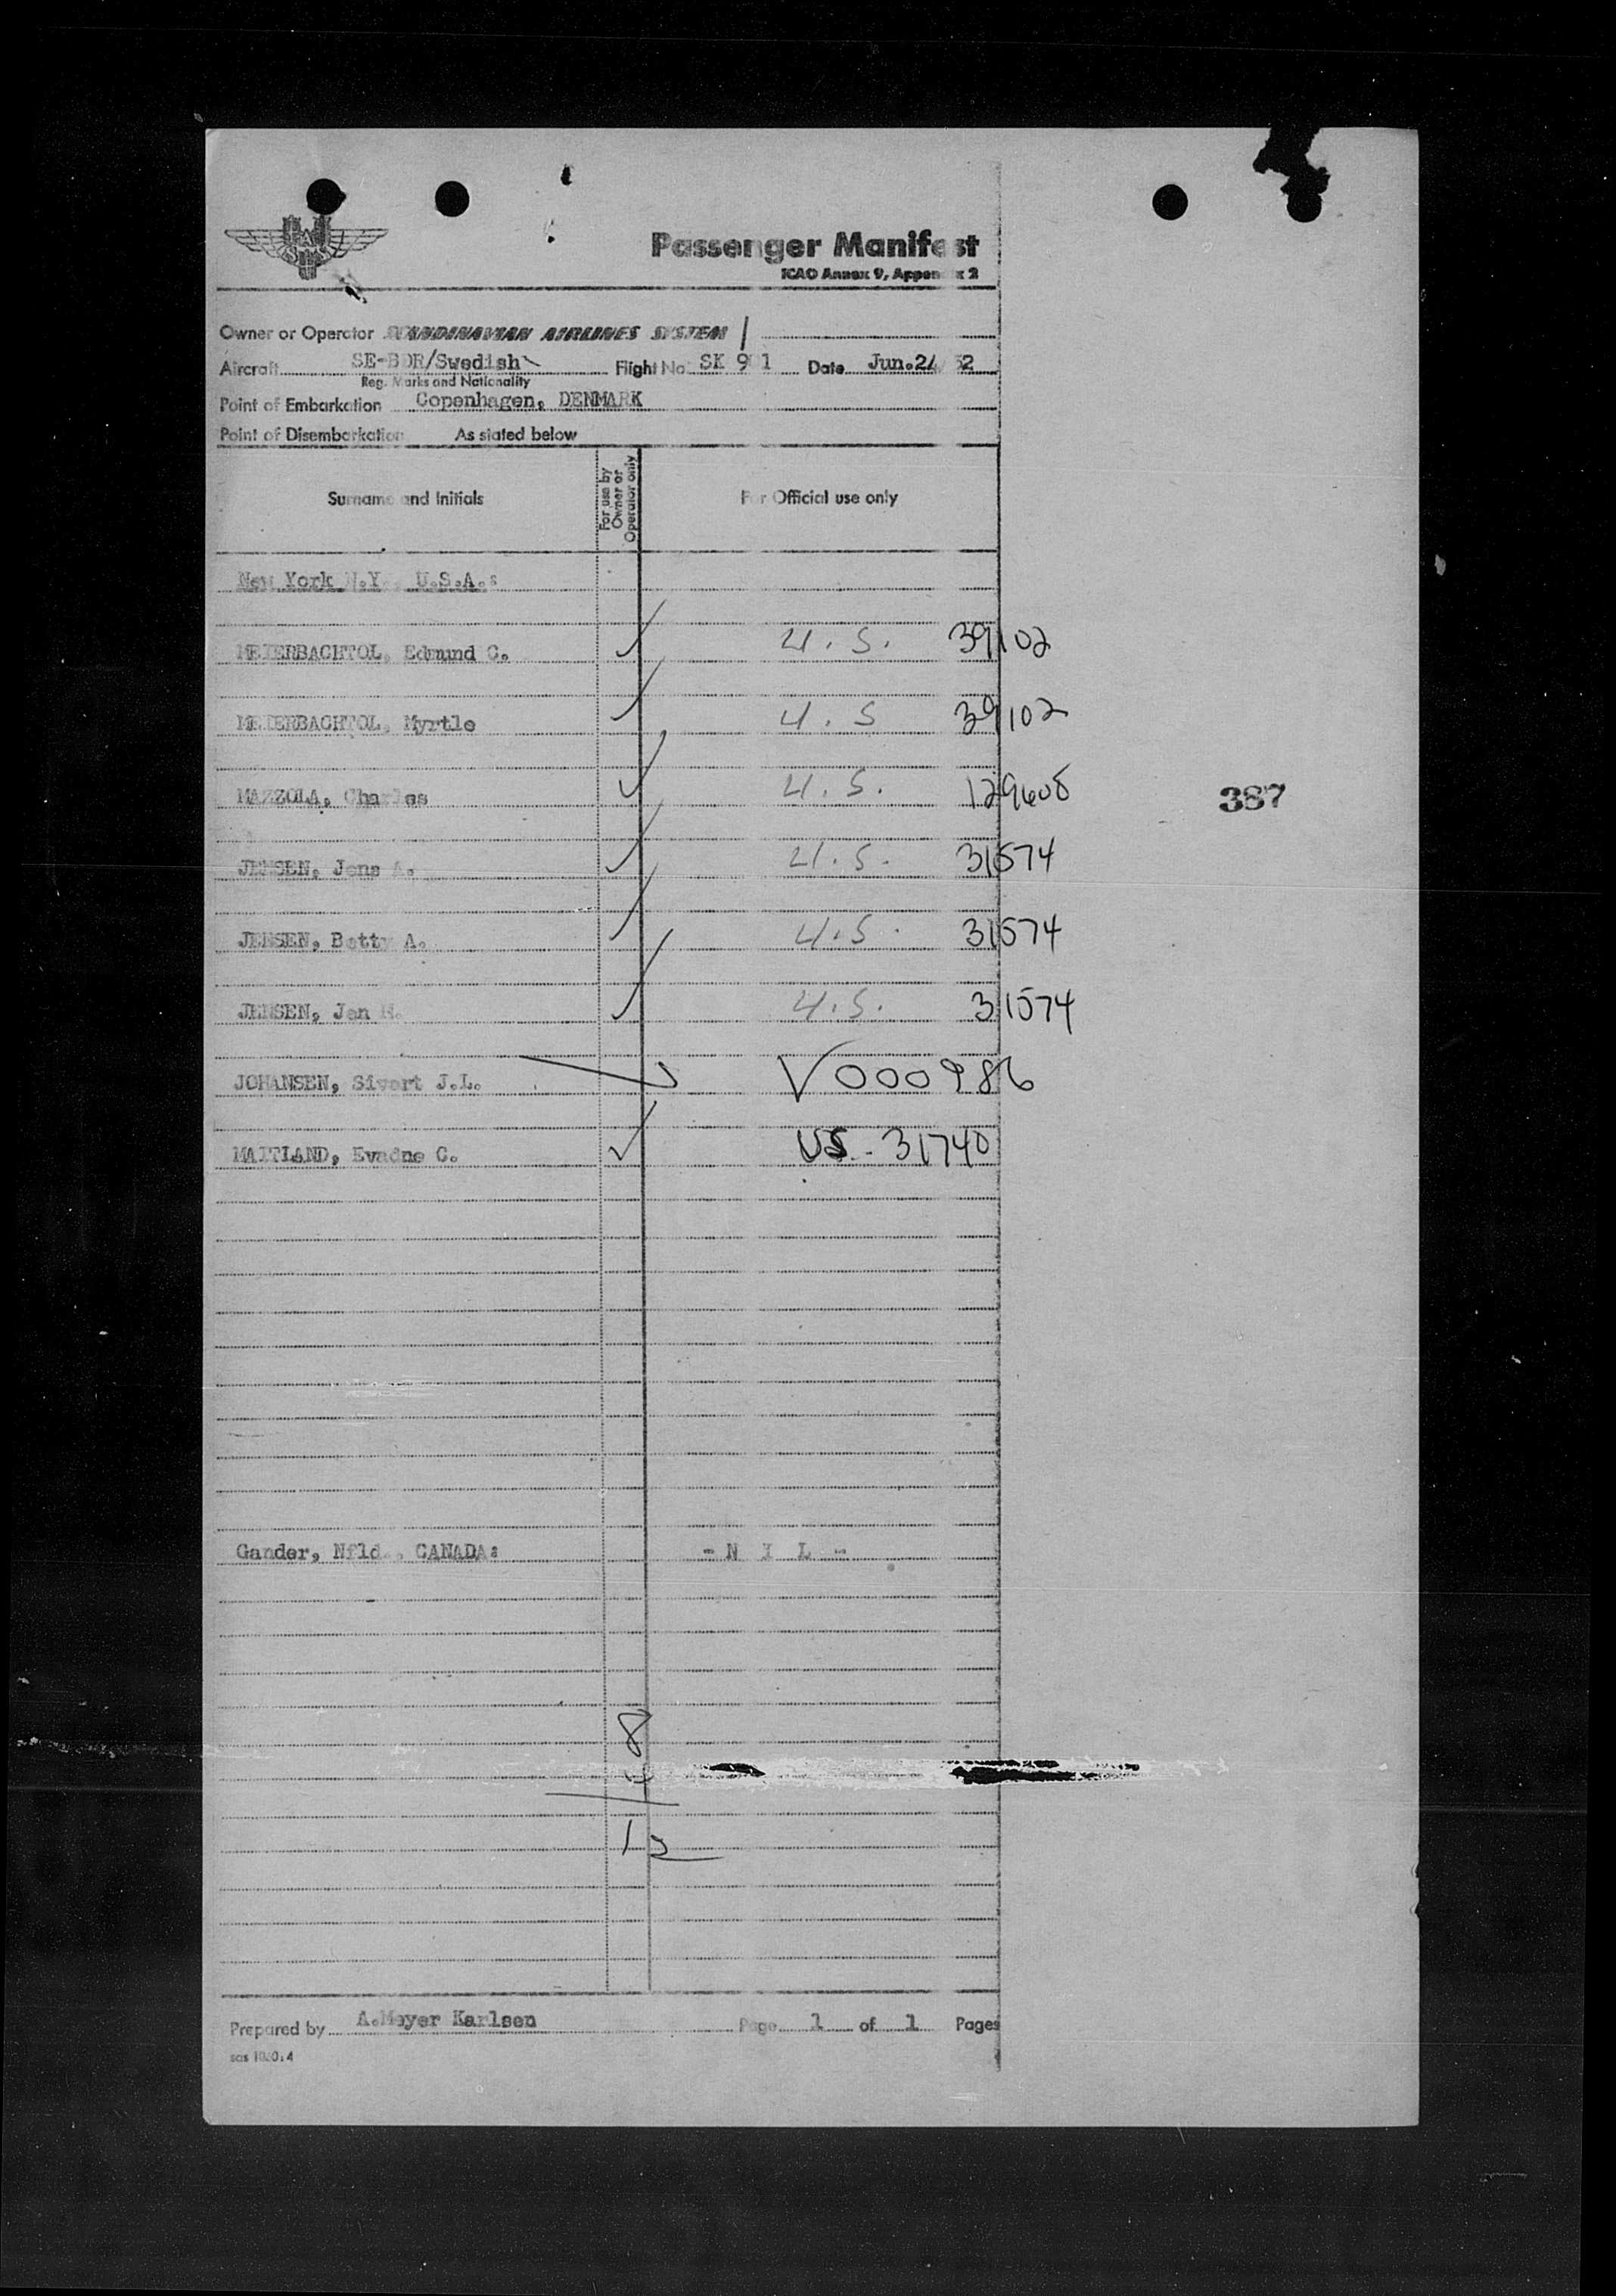 Passenger Manifest
ICAO Annex 9, Appendix 2
Owner or Operator SCANDINAVIAN AIRLINES SYSTEM
Aircraft SE-BDR/Swedish Flight No. SK 901 Date Jun.24/52
Reg. Marks and Nationality
Point of Embarkation Copenhagen, DENMARK
Point of Disembarkation As stated below
Surname and Initials For use by Owner or Operator only For Official use only
New York N.Y. U.S.A.:
MEIERBACHTOL, Edmund C. U.S. 39102
MEIERBACHTOL, Myrtle U.S 39102
MAZZOLA, Charles U.S. 129608 387
JENSEN, Jens A. U.S. 31574
JENSEN, Betty A. U.S. 31574
JENSEN, Jan U.S. 31574
JOHANSEN, Sivert J.L. V000986
MAITLAND, Evadne C. US. 31740
Gander, Nfld., CANADA: - N I L -
8
4
12
Prepared by A.Meyer Karlsen Page 1 of 1 Pages